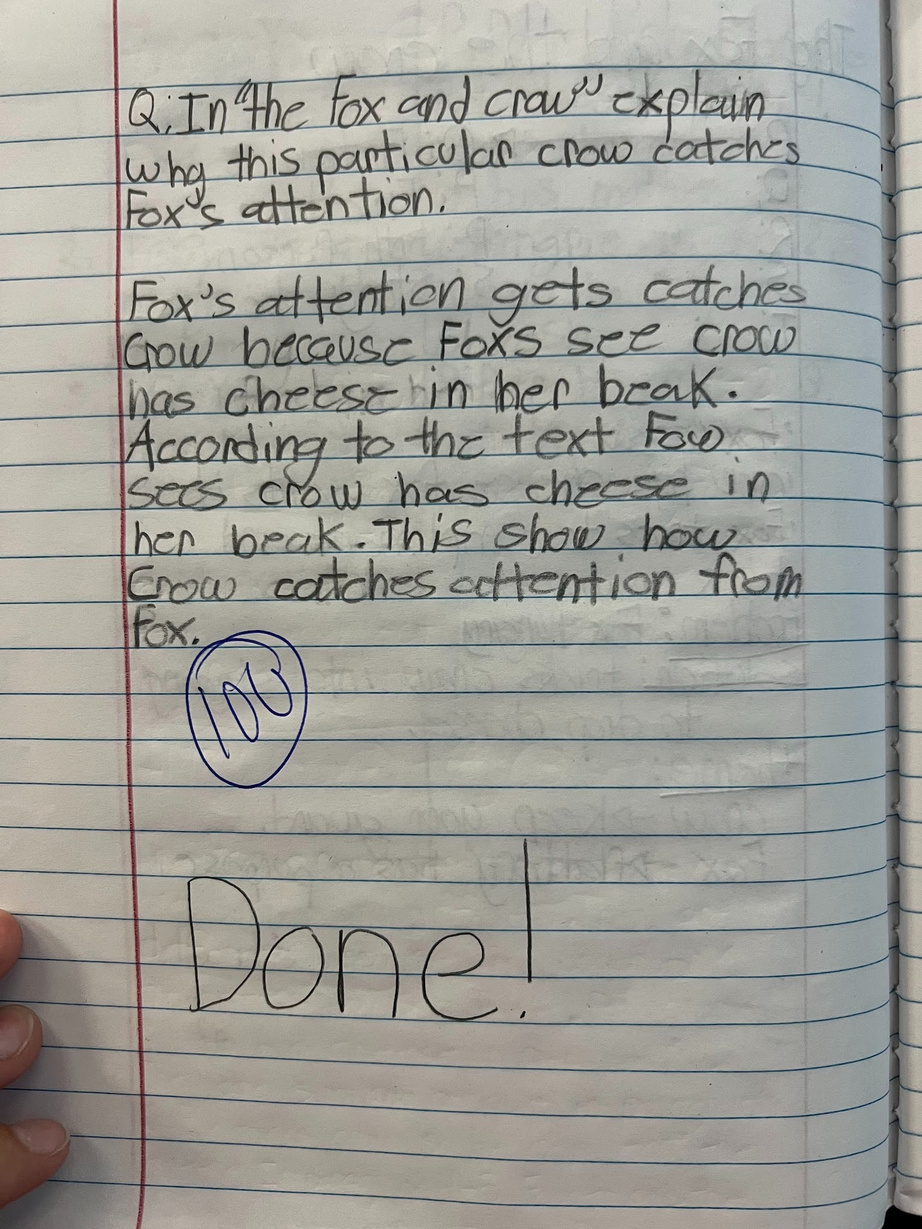 Q. In "the Fox and crow" explain
why this particular crow catches
Fox's attention.
Fox's attention gets catches
Crow because Foxs see crow
has cheese in her beak.
According to the text Fow
sees crow has cheese in
her beak. This show how
Crow catches attention from
fox.
100
Done!